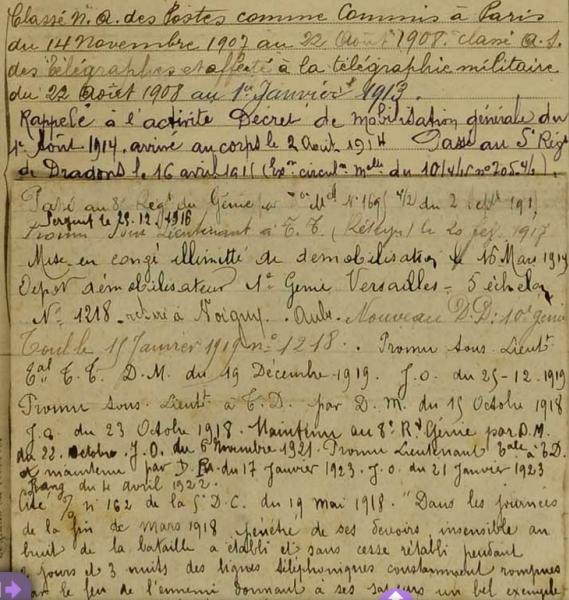 Classé N. A. des Postes comme Commis à Paris
du 14 Novembre 1907 au 22 Août 1908. classé A. S.
des Télégraphes et affecté à la télégraphie militaire
du 22 Août 1908 au 1er Janvier 1913.
Rappelé à l'activité Décret de Mobilisation générale du
1er Août 1914. arrivé au corps le 2 Août 1914 Passé au 5e Régt
de Dragons le 16 avril 1915
Passé au 8e Régt du Génie
Sergent le 25.12.1916
Promu Sous Lieutenant à T.T. le 20 fév. 1917
Mise en congé illimitté de démobilisation le 16 Mars 1919
Dépot démobilisateur 1er Génie Versailles - 5e échelon
No 1218. retiré à Aube. Nouveau D.D: 10e génie
Toul le 15 Janvier 1919 no 1218. Promu sous Lieutt
T. T. D.M. du 19 Décembre 1919. J.O. du 25-12.1919
Promu sous Lieutt à T.D. par D.M. du 15 Octobre 1918
J.O. du 23 Octobre 1918. Maintenu au 8e Rt Génie par D.M.
du 22 octobre. J.O. du 6 Novembre 1921 Promu Lieutenant à T.D.
et maintenu par D. du 17 Janvier 1923. J.O. du 21 Janvier 1923
Rang du 4 avril 1922.
Cité no 162 de la 5e D.C. du 19 mai 1918. "Dans les journées
de la fin de mars 1918 pénétré de ses devoirs insensible au
bruit de la bataille a établi et sans cesse rétabli pendant
jours et 3 nuits des lignes téléphoniques constamment rompues
par le feu de l'ennemi donnant à ses sapeurs un bel exemple